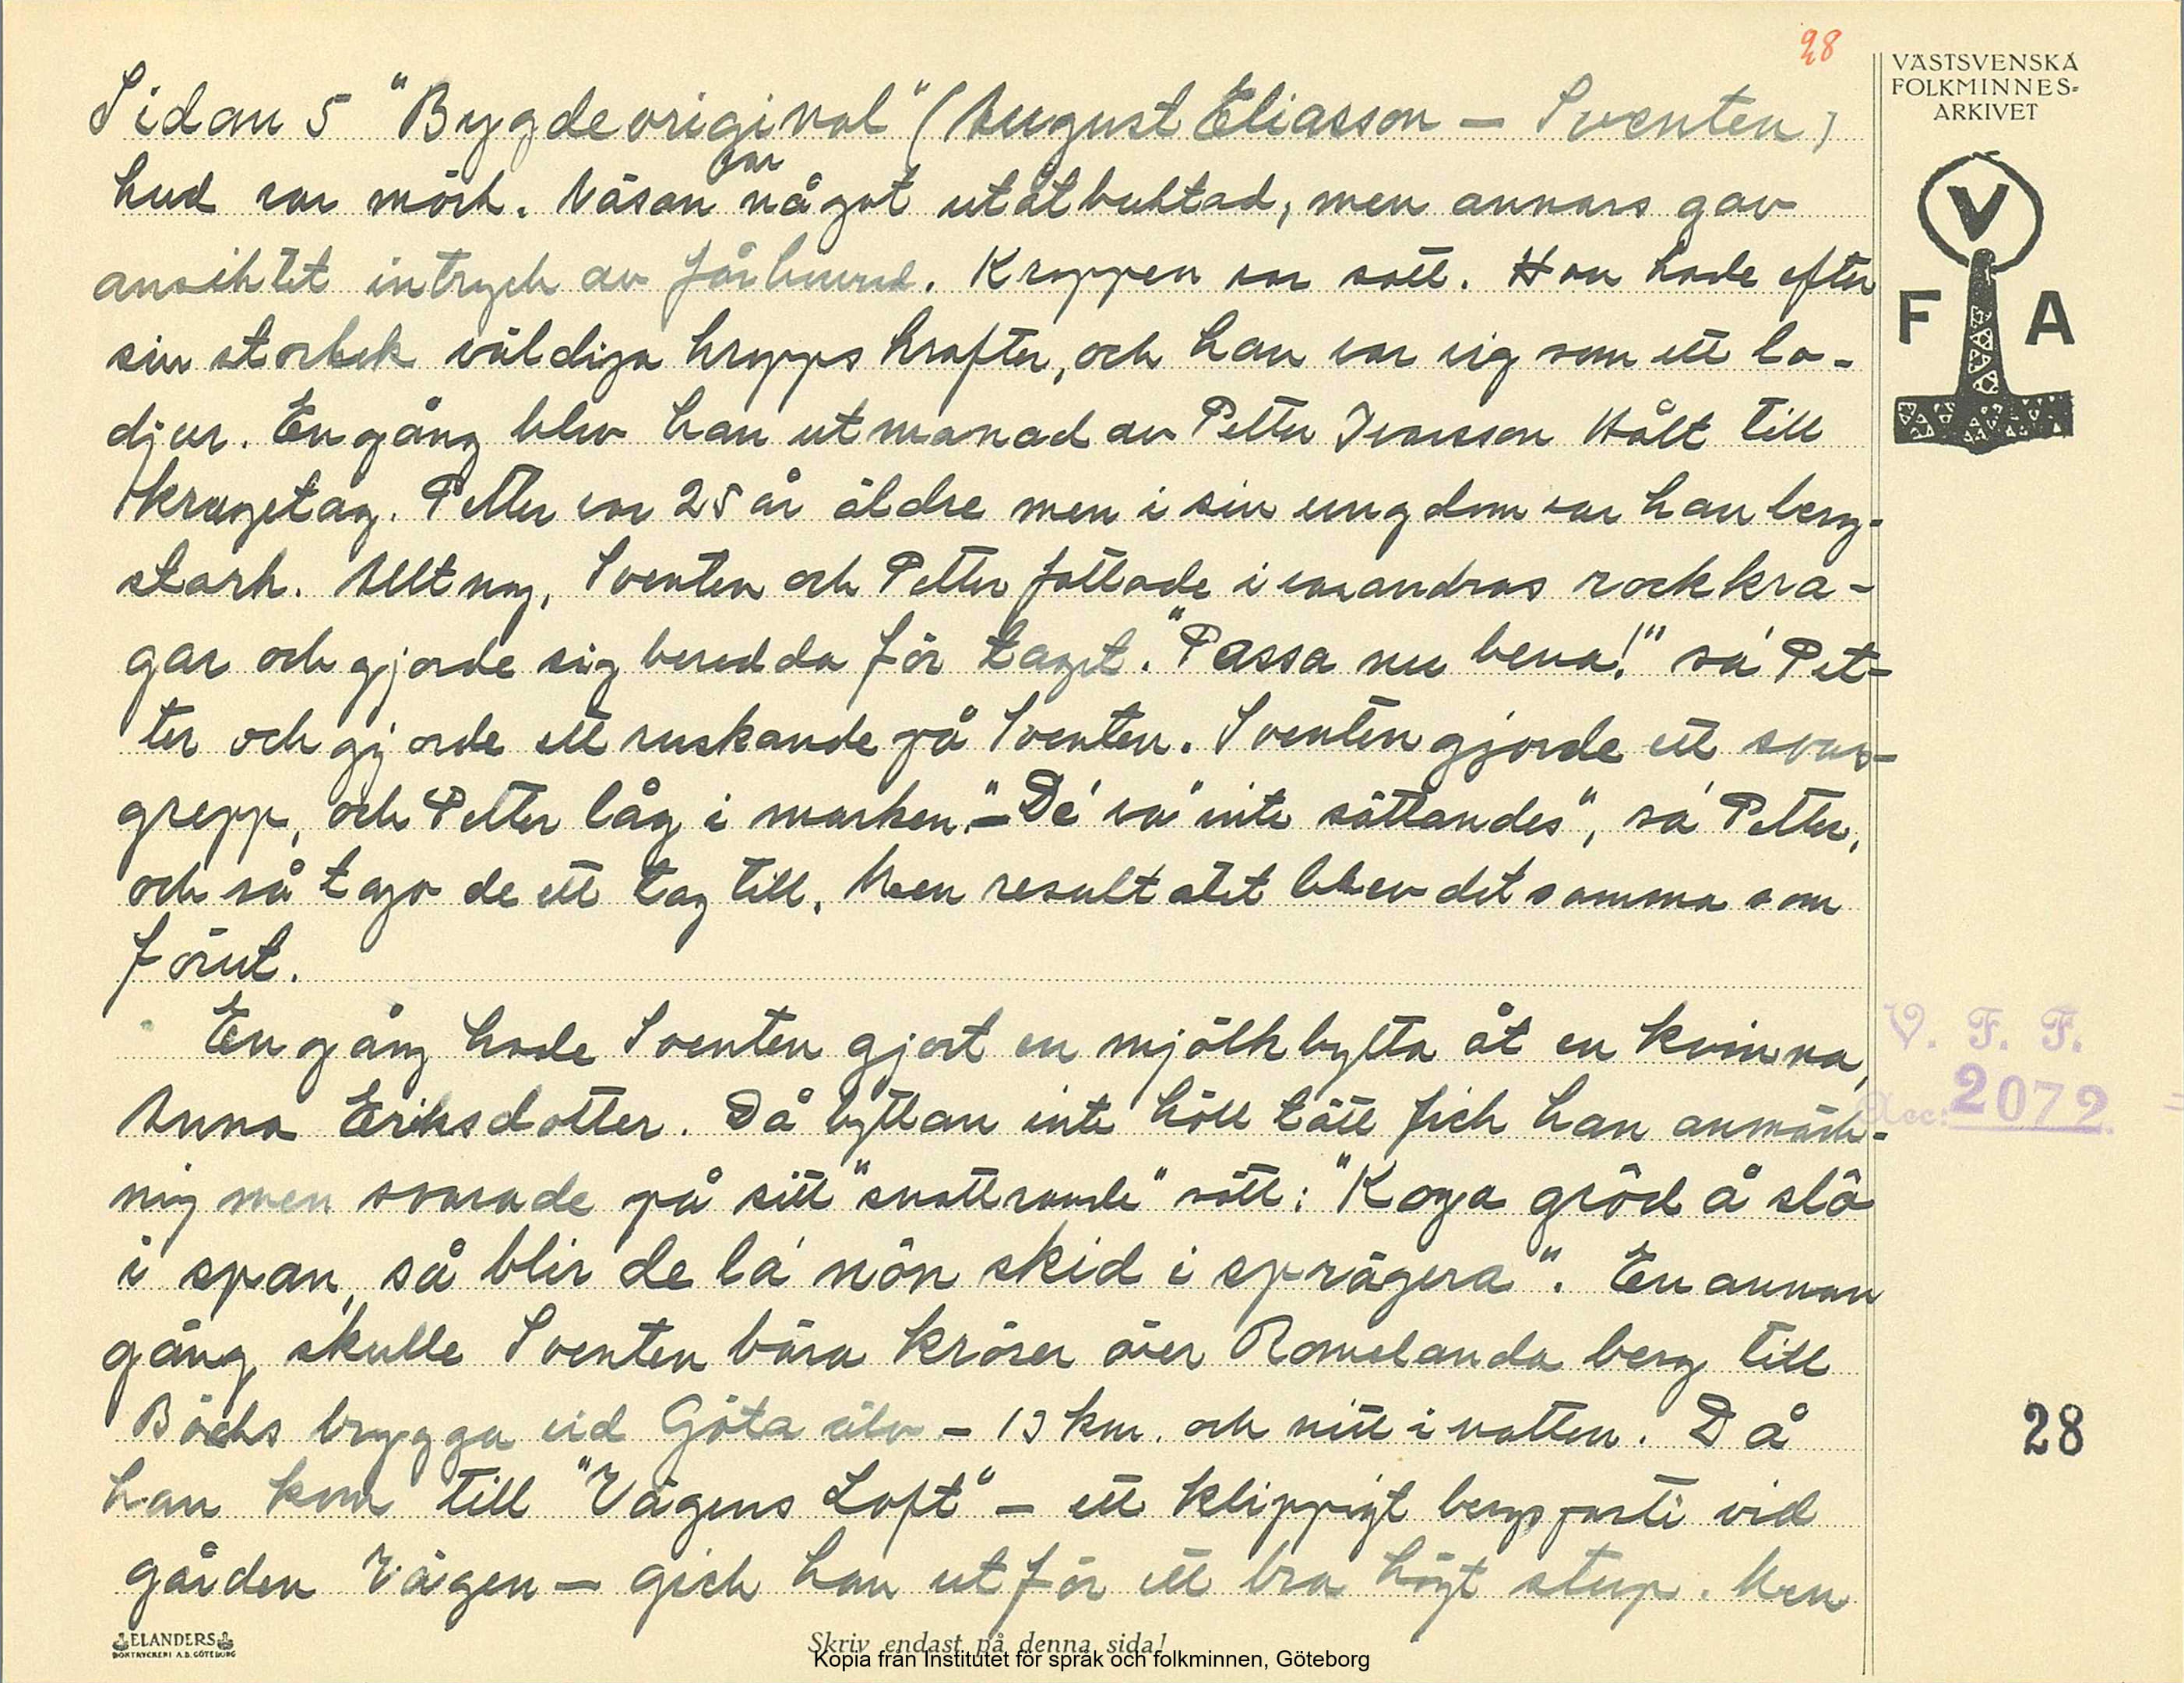 28
VÄSTSVENSKA
FOLKMINNES=
ARKIVET
V
F A
Sidan 5 "Bygdeoriginal" (August Eliasson — Sventen)
hud var mörk. Näsan var något utåtbuktad, men annars gav
ansiktet intryck av fårhuvud. Kroppen var satt. Han hade efter
sin storlek väldiga kroppskrafter, och han var vig som ett lo-
djur. En gång blev han utmanad av Petter Ivarsson Hålt till
kragetag. Petter var 25 år äldre men i sin ungdom var han berg-
stark. Allt nog, Sventen och Petter fattade i varandras rockkra-
gar och gjorde sig beredda för taget. "Passa nu bena!" sa' Pet-
ter och gjorde ett ruskande på Sventen. Sventen gjorde ett svar-
grepp, och Petter låg i marken. "– De' va' inte sättandes", sa' Petter,
och så togo de ett tag till. Men resultatet blev detsamma som
förut.
En gång hade Sventen gjort en mjölkbytta åt en kvinna,
Anna Eriksdotter. Då byttan inte höll tätt fick han anmärk-
ning men svarade på sitt "snattrande" sätt: "Koga gröd å slå
i span, så blir de la' nön skid i sprägera". En annan
gång skulle Sventen bära kröser över Romelanda berg till
Bäcks brygga vid Göta älv – 13 km. och mitt i natten. Då
han kom till "Vägens Loft" – ett klippigt bergsparti vid
gården Vägen – gick han utför ett bra högt stup. Men
V. F. F.
Acc: 2072
28
ELANDERS
BOKTRYCKERI A.B. GÖTEBORG
Skriv endast på denna sida!
Kopia från Institutet för språk och folkminnen, Göteborg